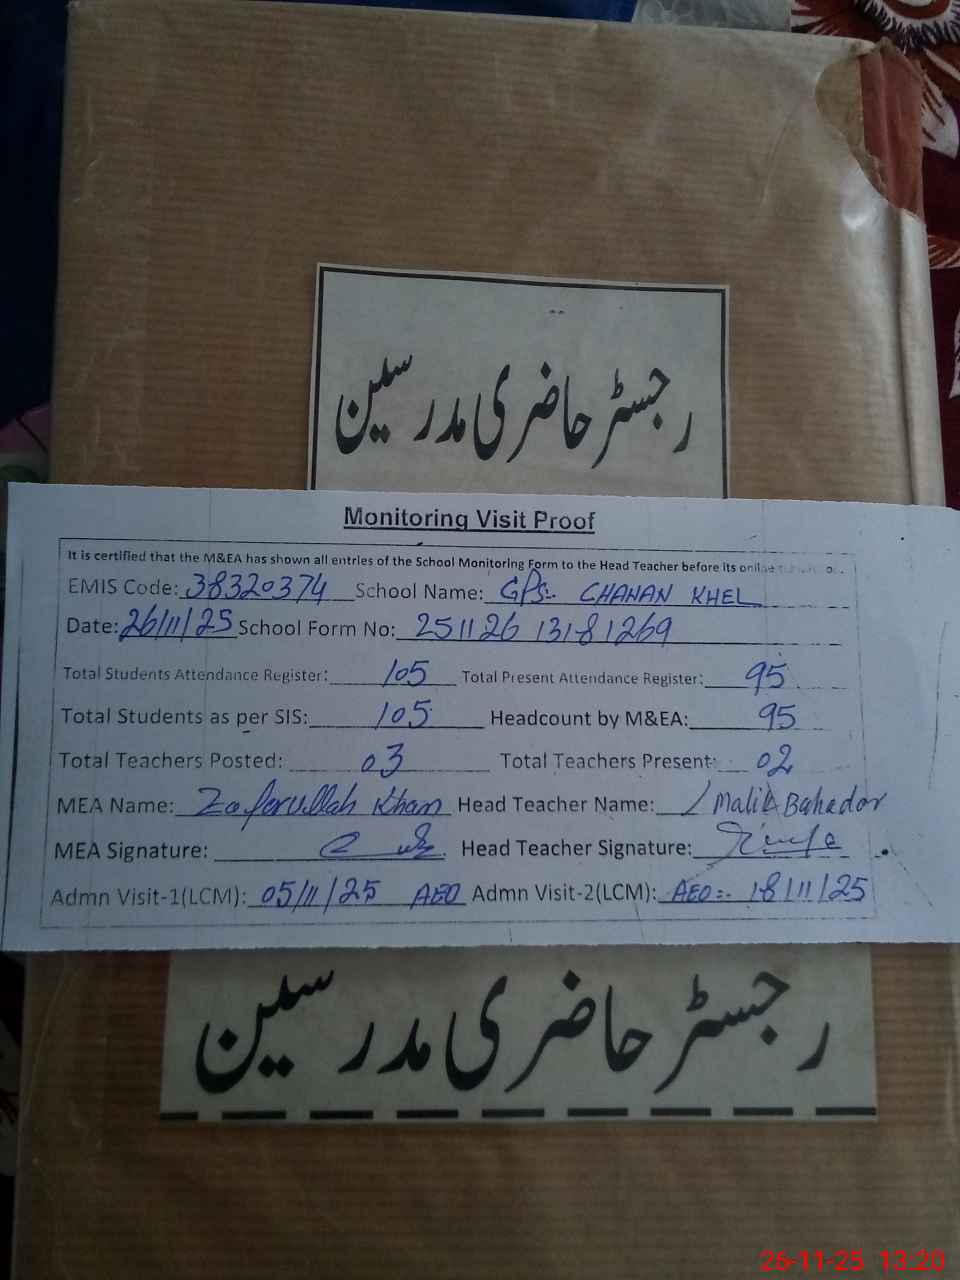 رجسٹر حاضری مدرسین
Monitoring Visit Proof
It is certified that the M&EA has shown all entries of the School Monitoring Form to the Head Teacher before its online
EMIS Code: 38320374 School Name: GPS:. CHANAN KHEL
Date: 26/11/25 School Form No: 251126 13181269
Total Students Attendance Register: 105 Total Present Attendance Register: 95
Total Students as per SIS: 105 Headcount by M&EA: 95
Total Teachers Posted: 03 Total Teachers Present: 02
MEA Name: Zafarullah Khan Head Teacher Name: Malik Bahador
MEA Signature: Head Teacher Signature:
Admn Visit-1(LCM): 05/11/25 AEO Admn Visit-2(LCM): AEO:- 18/11/25
رجسٹر حاضری مدرسین
26-11-25 13:20